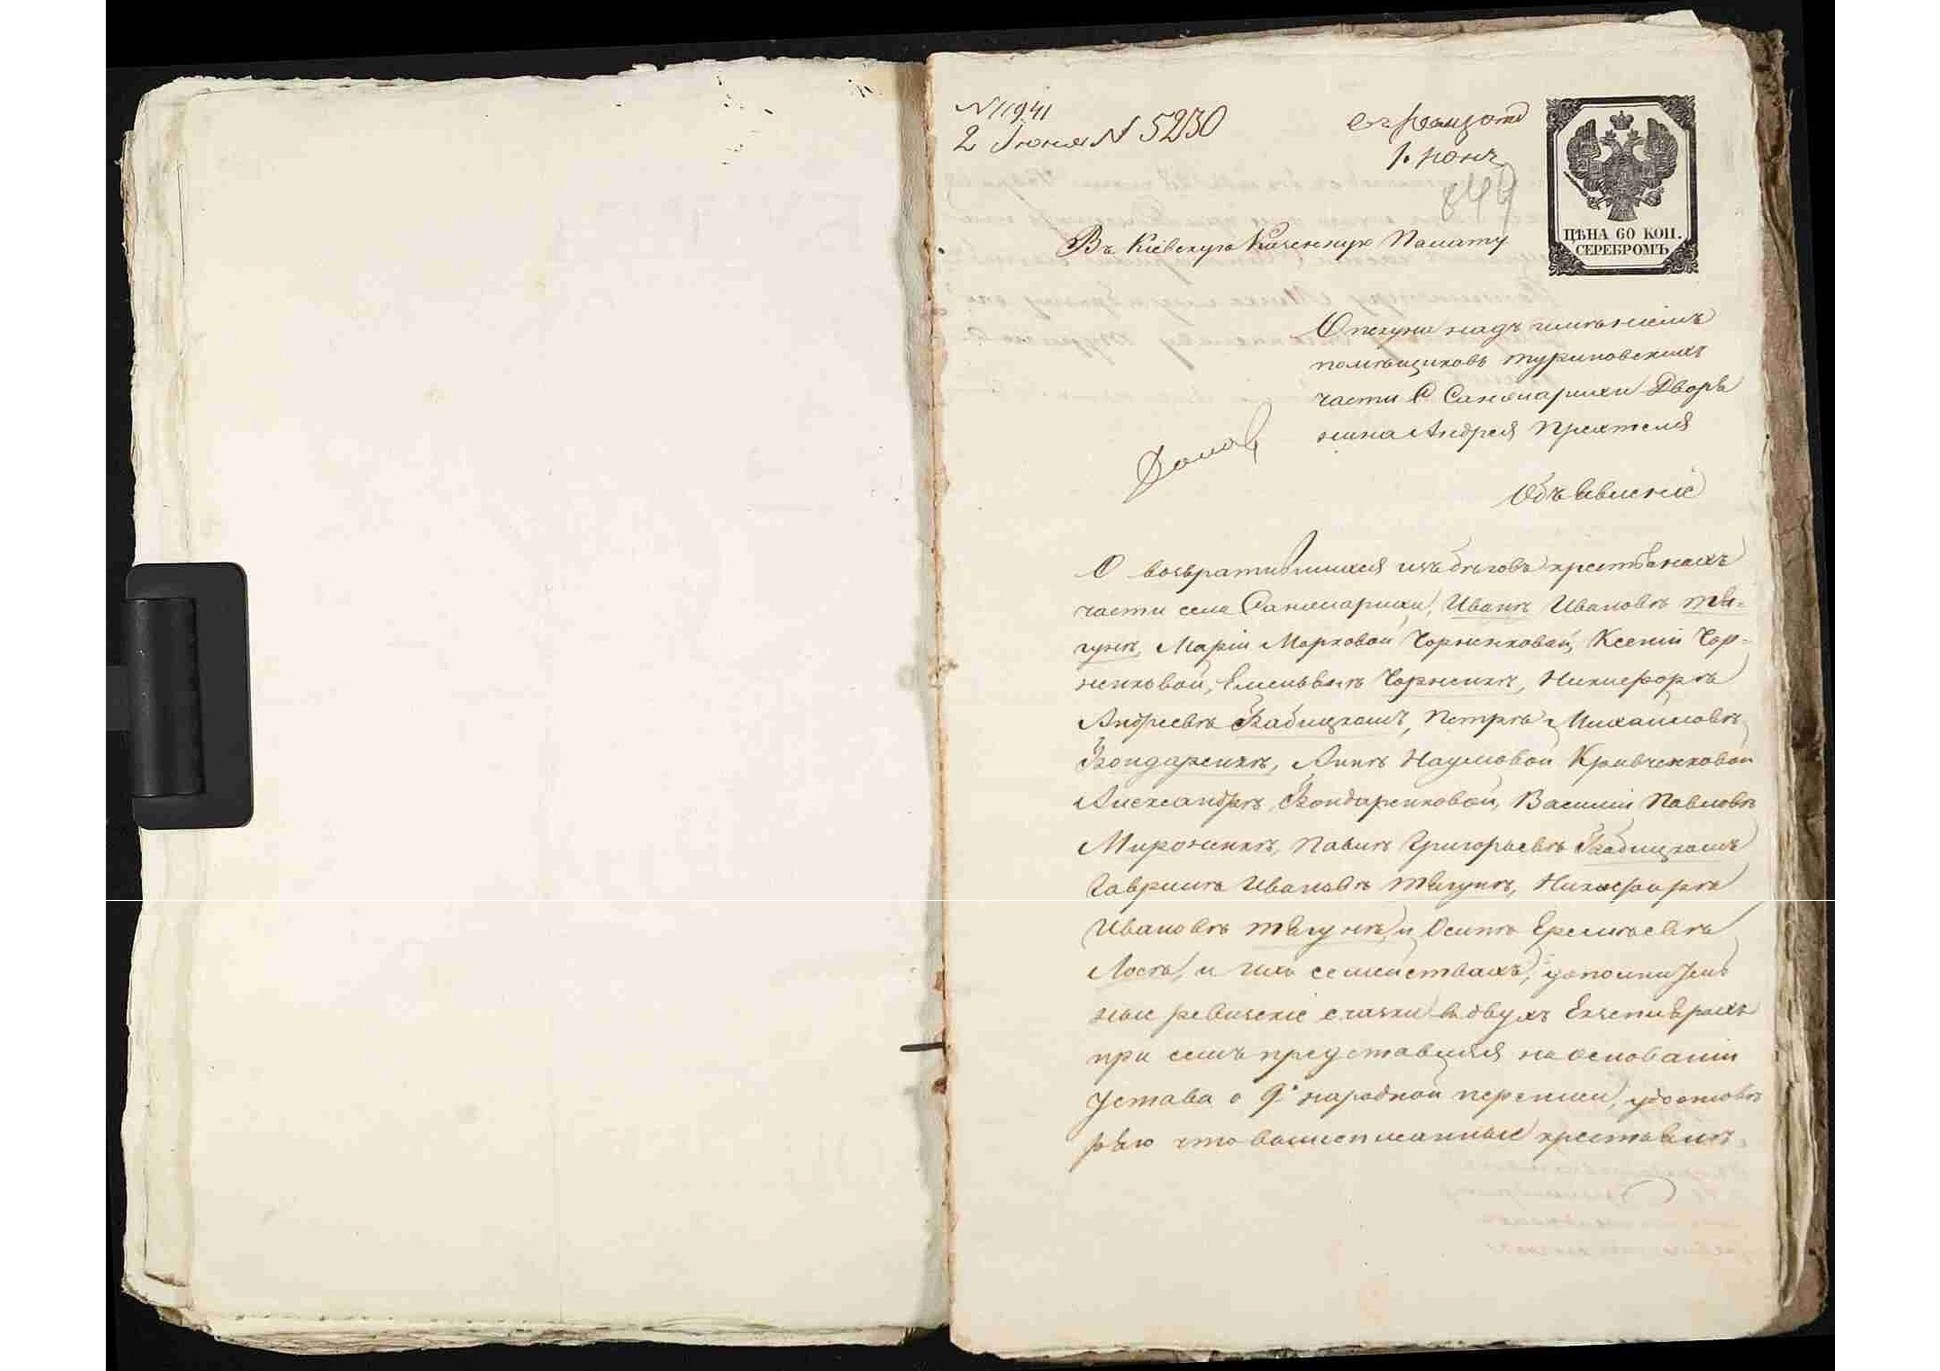 N 11941
2 Іюня N 5230
1. юня
849
ЦѢНА 60 КОП.
СЕРЕБРОМЪ
Въ Кіевскую Казенную Палату
Опекуна надъ имѣніемъ
помѣщиковъ Туриновскихъ
части С Саномарихи Дворя
нина Андрея Пріятеля
Объявленіе
О возвратившихся изъ бѣговъ крестьянахъ
части села Саномарихи, Иванѣ Ивановѣ Тя-
гунѣ, Маріи Марковой Чорненковой, Ксеніи Чор-
ненковой, Емельянѣ Чорненкѣ, Никифорѣ
Андреевѣ Бабицкомъ, Петрѣ Михайловѣ
Бондаренкѣ, Аннѣ Наумовой Кривченковой
Александрѣ Бондаренковой, Василіи Павловѣ
Мироненкѣ, Павлѣ Григорьевѣ Бабицкомъ
Гаврилѣ Ивановѣ Тягунѣ, Никифорѣ
Ивановѣ Тягунѣ, и Осипѣ Еремѣевѣ
Лосѣ, и ихъ семействахъ, дополнитель
ные ревизскіе сказки въ двухъ Екземплярахъ
при семъ представляя на основаніи
Устава о 9й народной переписи, удостовѣ
ряю что вышеписанные крестьяне